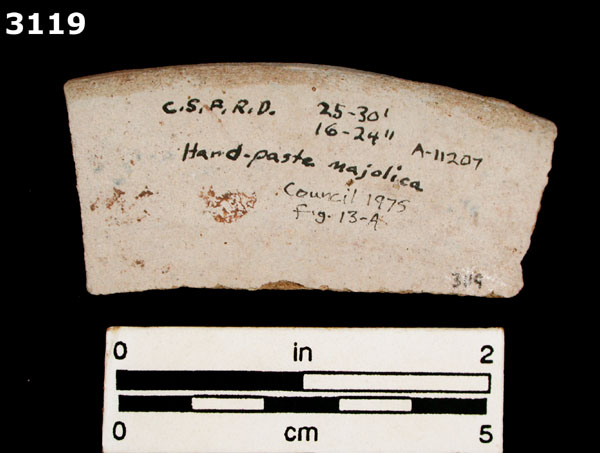 3119
C.S.P.R.D. 25-30'
16-24"
A-11207
Hard-paste majolica
Council 1975
fig. 13-A
3119
0 in 2
0 cm 5